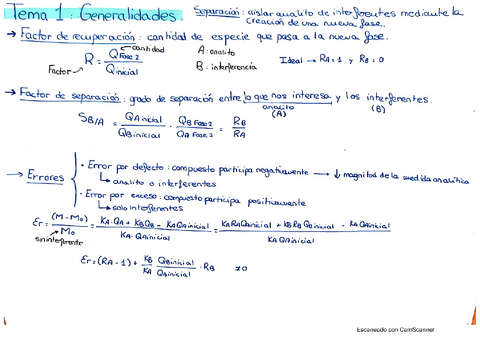 Tema 1: Generalidades. Separación: aislar analito de interferentes mediante la
creación de una nueva fase.
→ Factor de recuperación: cantidad de especie que pasa a la nueva fase.
Factor R = Q Fase 2 / Q inicial cantidad A: analito B: interferencia Ideal → RA = 1 y RB = 0
→ Factor de separación: grado de separación entre lo que nos interesa y los interferentes.
analito (A) (B)
S B/A = QA inicial / QB inicial · QB Fase 2 / QA Fase 2 = RB / RA
→ Errores
· Error por defecto: compuesto participa negativamente → ↓ magnitud de la medida analítica
↳ analito o interferentes
· Error por exceso: compuesto participa positivamente
↳ solo interferentes
Er = (M - Mo) / Mo = (KA · QA + KB QB - KA QA inicial) / (KA · QA inicial) = (KA RA QA inicial + KB RB QB inicial - KA QA inicial) / (KA QA inicial)
sin interferente
Er = (RA - 1) + KB / KA · QB inicial / QA inicial · RB ≠0
Escaneado con CamScanner